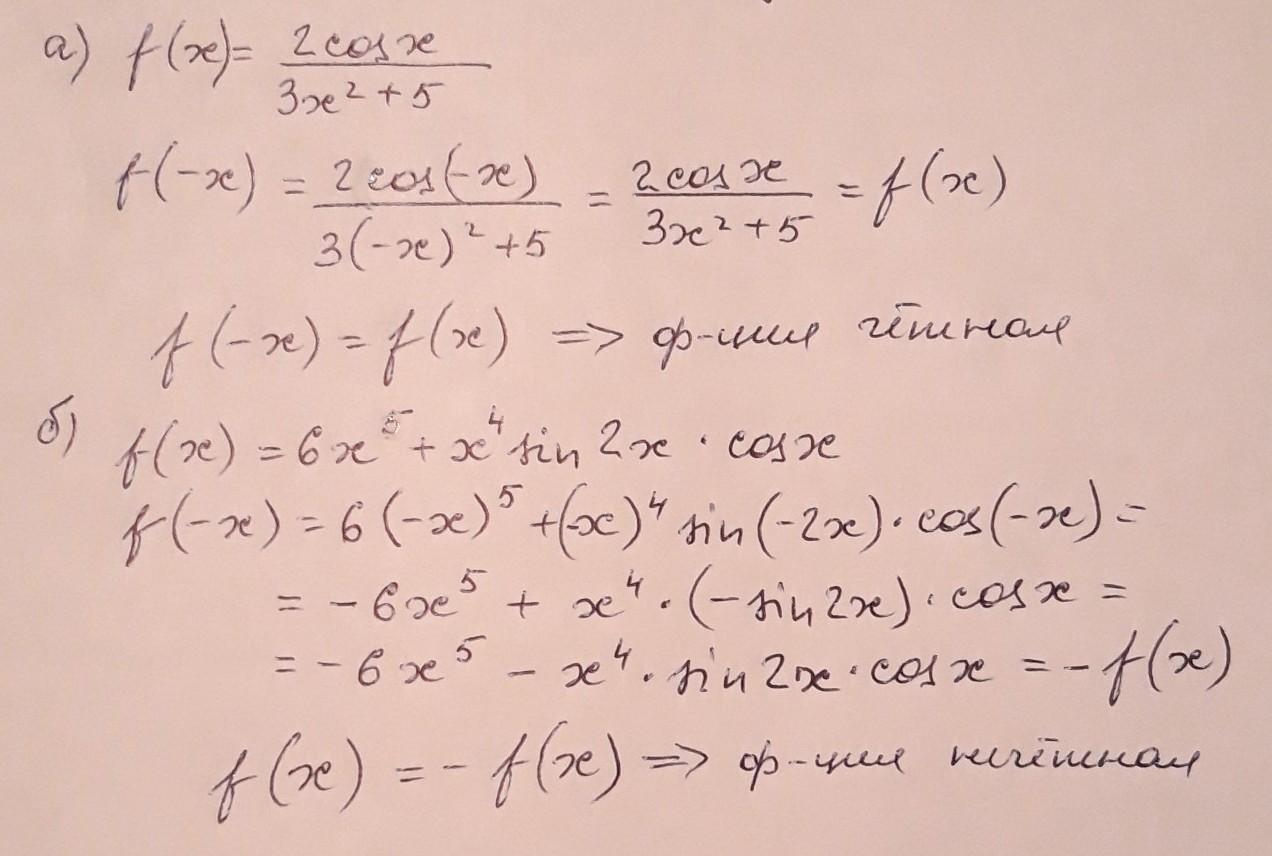 а) f(x) = 2cosx / 3x² + 5
f(-x) = 2cos(-x) / 3(-x)² + 5 = 2cosx / 3x² + 5 = f(x)
f(-x) = f(x) => ф-ция чётная
б) f(x) = 6x⁵ + x⁴ sin 2x · cosx
f(-x) = 6(-x)⁵ + (-x)⁴ sin(-2x) · cos(-x) =
= -6x⁵ + x⁴ · (-sin2x) · cosx =
= -6x⁵ - x⁴ · sin2x · cosx = -f(x)
f(x) = -f(x) => ф-ция нечётная